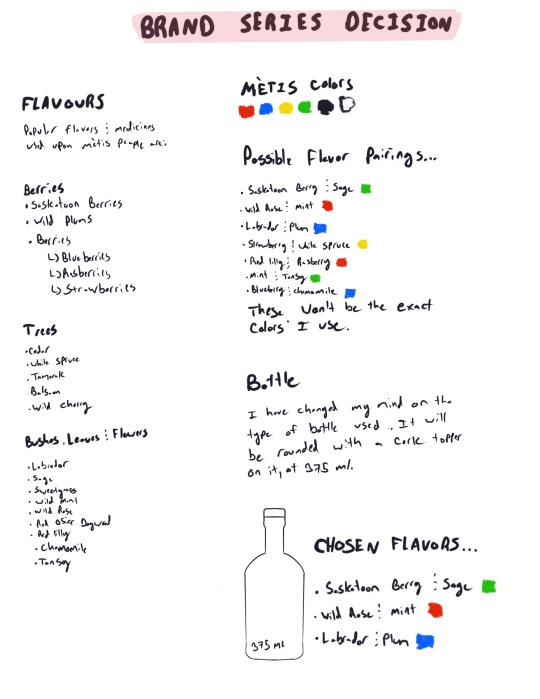 BRAND SERIES DECISION
FLAVOURS
Popular flavors & medicines
used upon mètis people are:
Berries
• Saskatoon Berries
• Wild Plums
• Berries
↳ Blueberries
↳ Rasberries
↳ Strawberries
Trees
• Cedar
• White Spruce
• Tamarak
• Balsam
• Wild Cherry
Bushes, Leaves & Flowers
• Labrador
• Sage
• Sweetgrass
• Wild Mint
• Wild Rose
• Red Osier Dogwood
• Red lilly
• Chamomile
• Tansy
MÈTIS Colors
Possible Flavor Pairings...
• Saskatoon Berry & Sage
• Wild Rose & Mint
• Labrador & Plum
• Strawberry & White Spruce
• Red lilly & Rasberry
• Mint & Tansy
• Blueberry & Chamomile
These won't be the exact
Colors I use.
Bottle
I have changed my mind on the
type of bottle used. It will
be rounded with a cork topper
on it, at 375 ml.
375 ML
CHOSEN FLAVORS...
• Saskatoon Berry & Sage
• Wild Rose & Mint
• Labrador & Plum